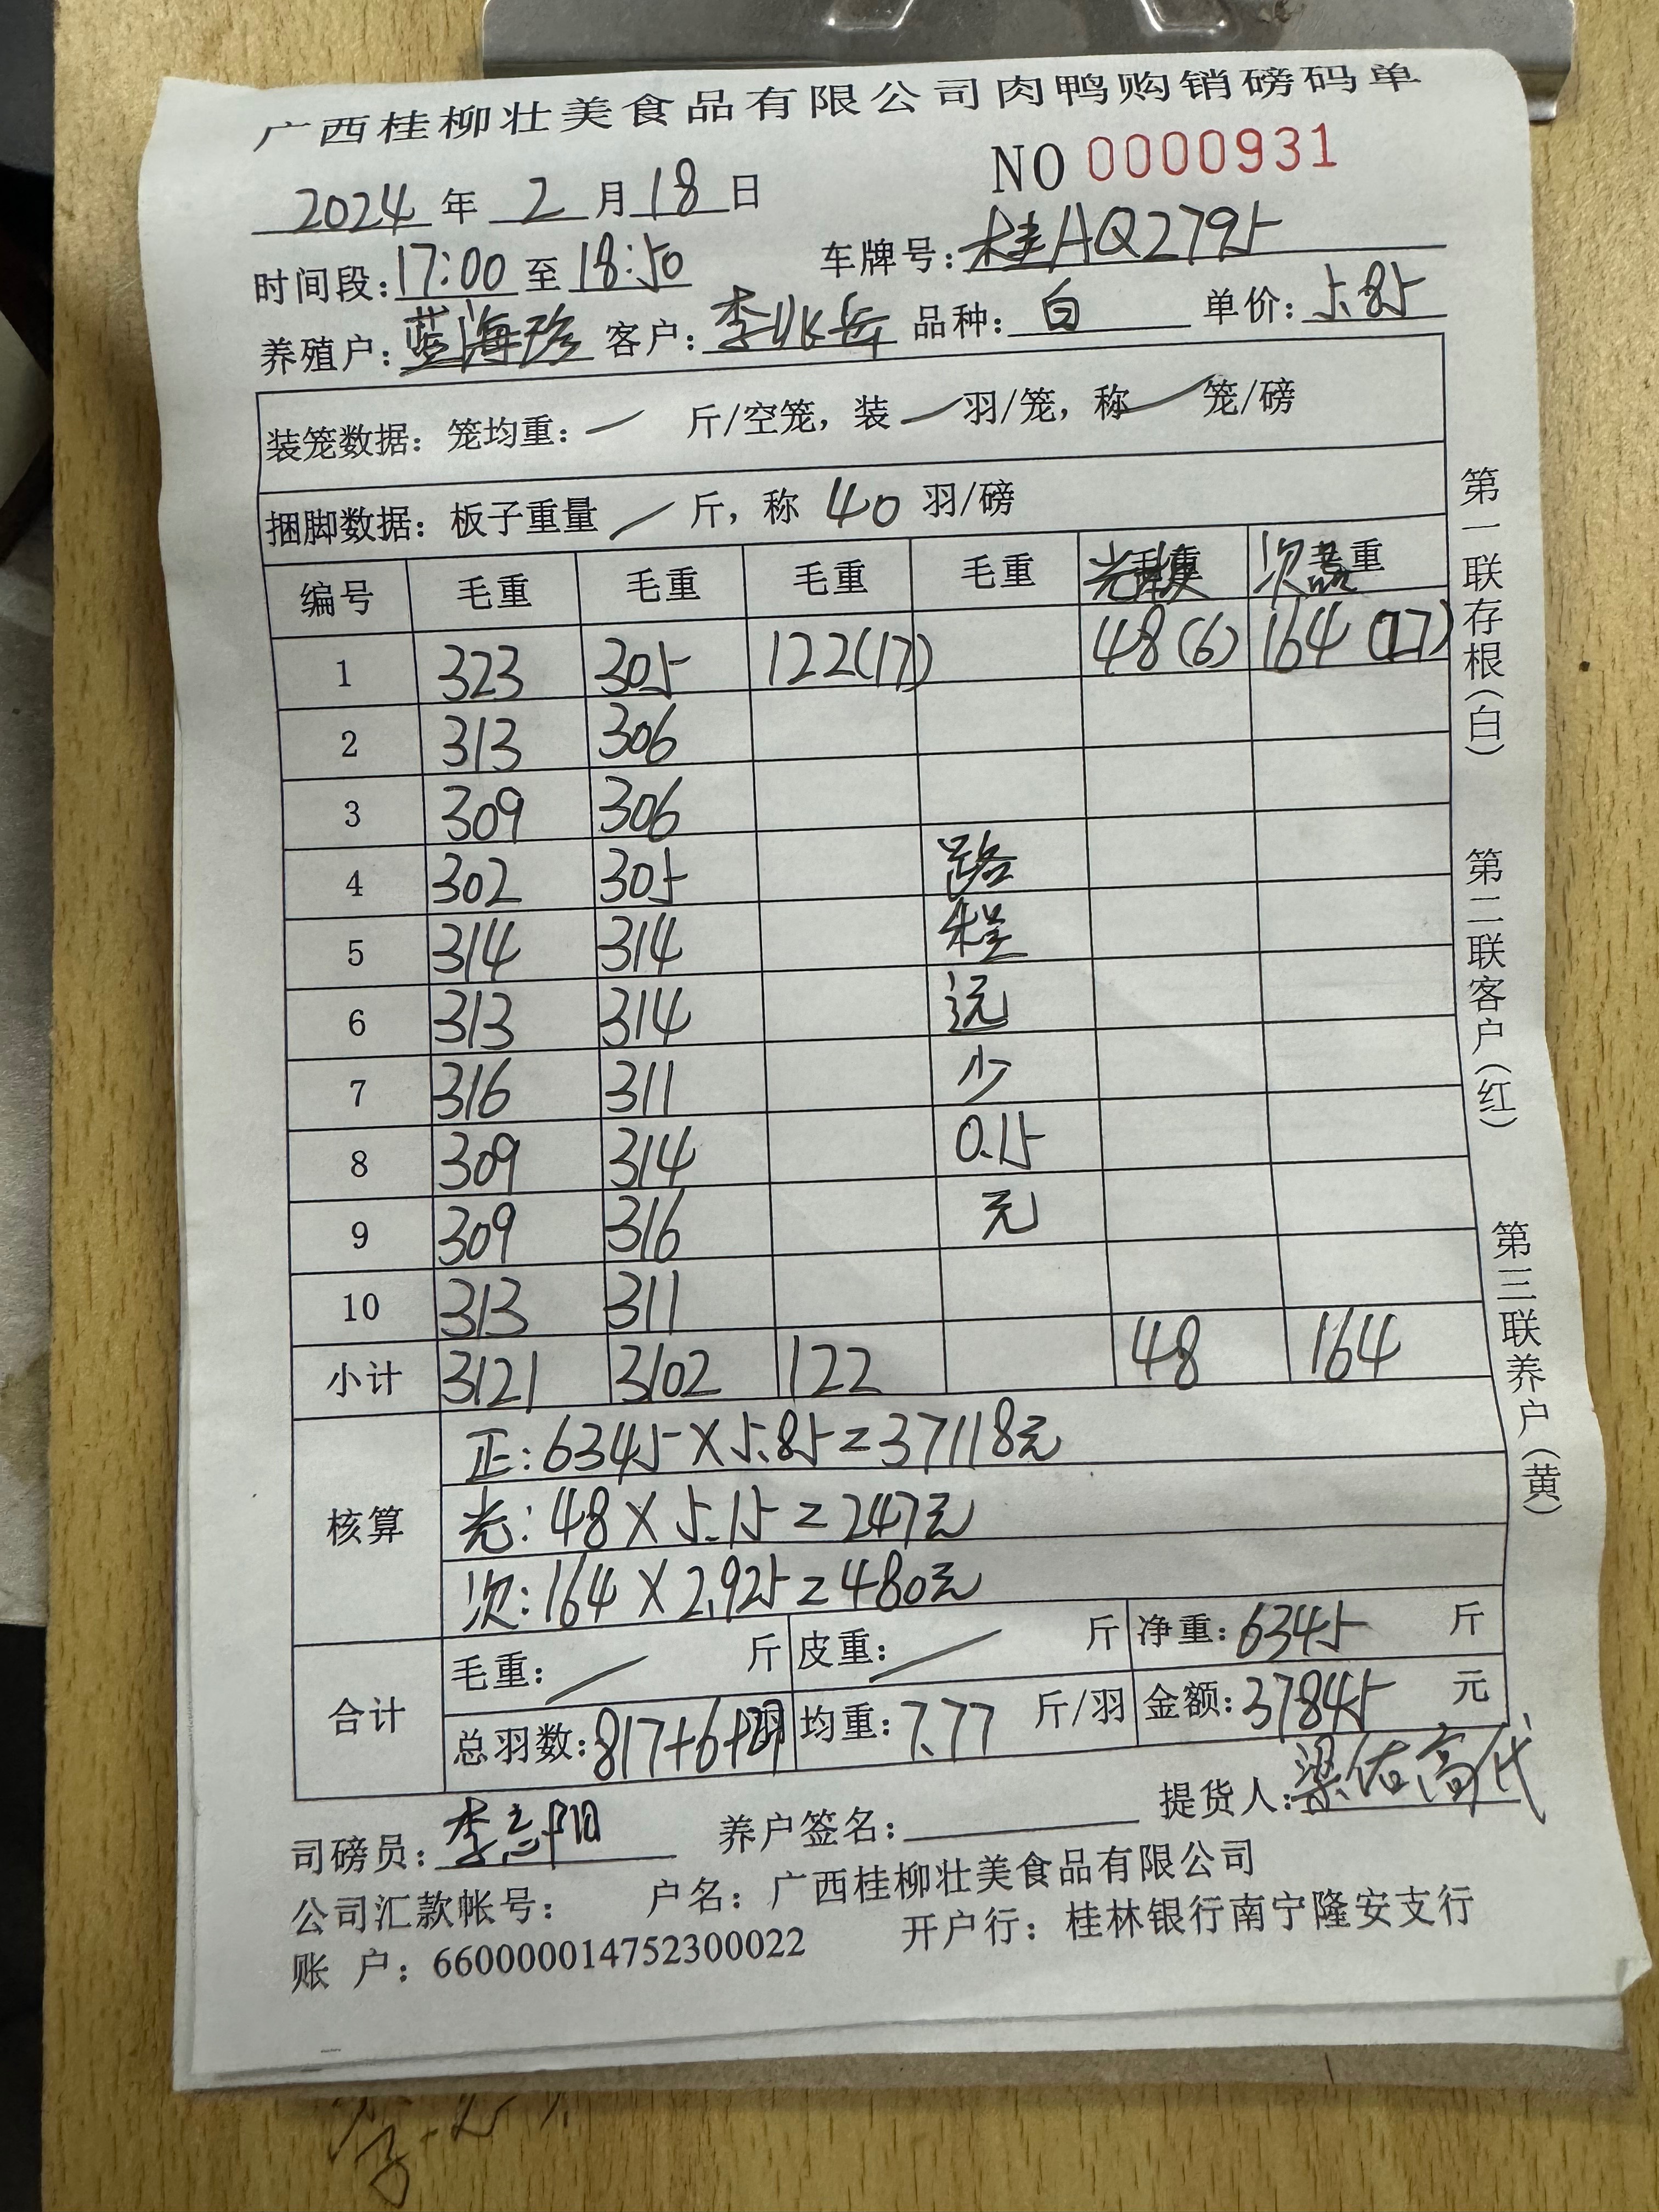 广西桂柳壮美食品有限公司肉鸭购销磅码单
NO 0000931
2024 年 2 月 18 日
时间段: 17:00 至 18:50 车牌号: 桂AQ2795
养殖户: 蓝海珍 客户: 李兆岳 品种: 白 单价: 5.85
装笼数据: 笼均重: / 斤/空笼, 装 / 羽/笼, 称 / 笼/磅
捆脚数据: 板子重量 / 斤, 称 40 羽/磅
编号 毛重 毛重 毛重 毛重 次品
1 323 305 122(17) 48(6) 164(27)
2 313 306
3 309 306
4 302 305 路
5 314 314 程
6 313 314 远
7 316 311 少
8 309 314 0.15
9 309 316 元
10 313 311
小计 3121 3102 122 48 164
核算
正: 6345 X 5.85 = 37118元
光: 48 X 5.15 = 247元
次: 164 X 2.925 = 480元
合计
毛重: / 斤 皮重: / 斤 净重: 6345 斤
总羽数: 817+6+27羽 均重: 7.77 斤/羽 金额: 37845 元
司磅员: 李志阳 养户签名: 提货人: 梁佑高代
公司汇款帐号: 户名: 广西桂柳壮美食品有限公司
账 户: 660000014752300022 开户行: 桂林银行南宁隆安支行
第一联存根(白)
第二联客户(红)
第三联养户(黄)